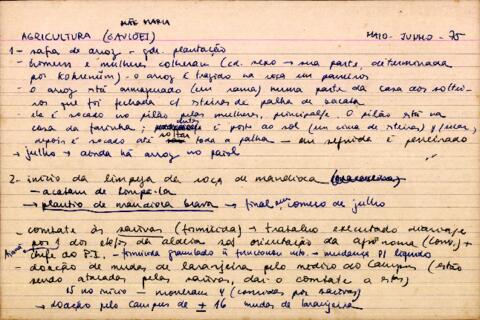 MÃE MARIA
AGRICULTURA (GAVIÕES) MAIO - JUNHO - 75
1 - safra de arroz - gde. plantação
- homens e mulheres colheram (cd. sexo → sua parte, determinada
por Kohrenum) - o arroz é trazido na roça em paneiros
- o arroz está armazenado (em rama) numa parte da casa dos soltei-
ros que foi fechada c/ esteiras de palha de
- ele é socado no pilão pelas mulheres, principalte. O pilão está na
casa da farinha; antes é posto ao sol (em cima de esteiras) p/ secar,
depois é socado até soltar toda a palha - em seguida é peneirado
→ julho → ainda há arroz no paiol
2 - início da limpeza da roça de mandioca
- acabam de limpá-la
→ plantio de mandioca brava → final comêço de julho
- combate às saúvas (formicida) → trabalho executado
por 1 dos da aldeia sob orientação da agrônoma (conv.) +
chefe do P.I. - formicida granulado ñ funcionou mto. → mudança p/ líquido
- doação de mudas de laranjeira pelo médico do Campus (estão
sendo atacadas pelas saúvas, daí o combate a estas)
15 no início - morreram 4 (comidas por saúvas)
→ doação pelo Campus de ± 16 mudas de laranjeira